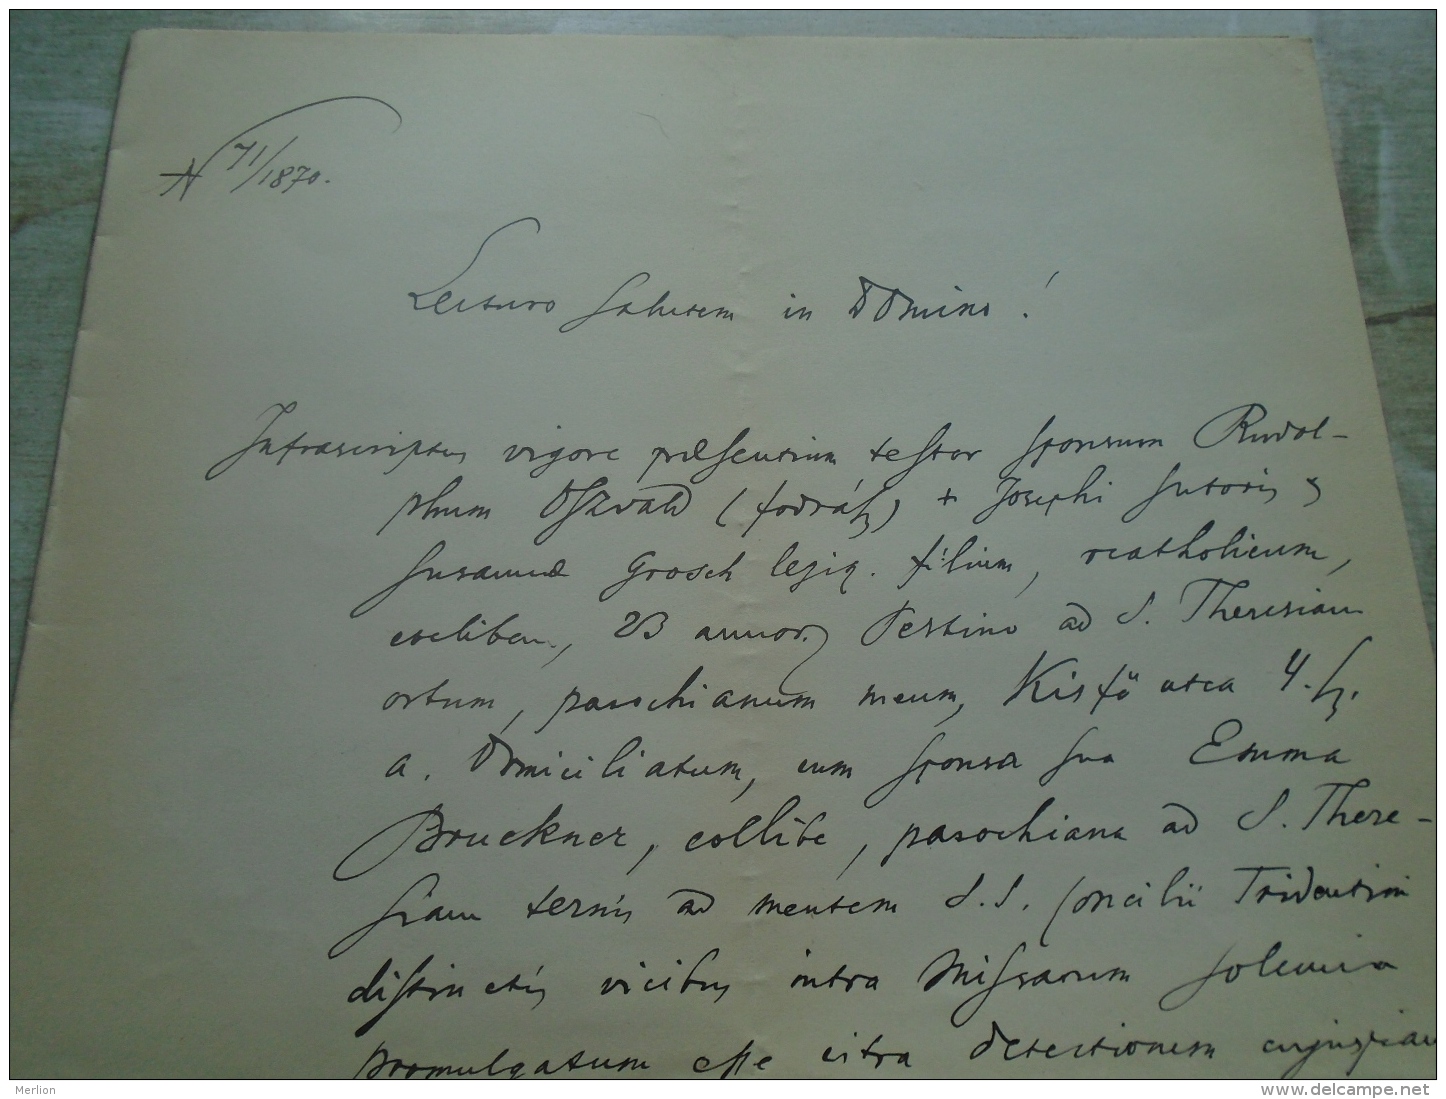 N 71/1870.
Lecturo Salutem in Domino!
Infrascriptus vigore præsentium testor sponsum Rudol-
phum Oszvald (fodrász) + Josephi sutoris &
Susannæ Grosch legiq. filium, rcatholicum,
coelibem, 23 annor. Pestino ad S. Theresiam
ortum, parochianum meum, Kisfö utca 4. sz.
a. Domiciliatum, cum sponsa sua Emma
Bruckner, collibe, parochiana ad S. There-
siam ternis ad mentem S.S. Concilii Tridentini
distinctis vicibus intra Missarum solemnia
promulgatum esse citra detectionem cujuspiam
Merlion
www.delcampe.net